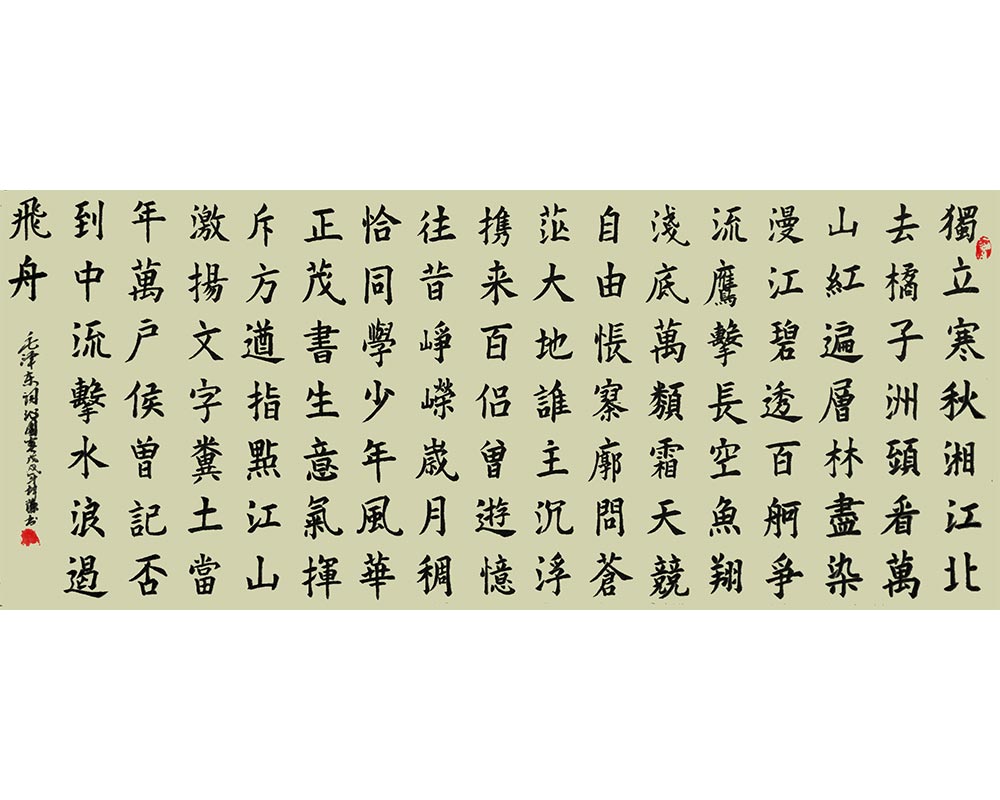 獨立寒秋湘江北
去橘子洲頭看萬
山紅遍層林盡染
漫江碧透百舸爭
流鷹擊長空魚翔
淺底萬類霜天競
自由悵寥廓問蒼
茫大地誰主沉浮
携来百侣曾遊憶
往昔崢嶸歲月稠
恰同學少年風華
正茂書生意氣揮
斥方遒指點江山
激揚文字糞土當
年萬户侯曾記否
到中流擊水浪遏
飛舟
毛泽东词沁園春戊戌年书